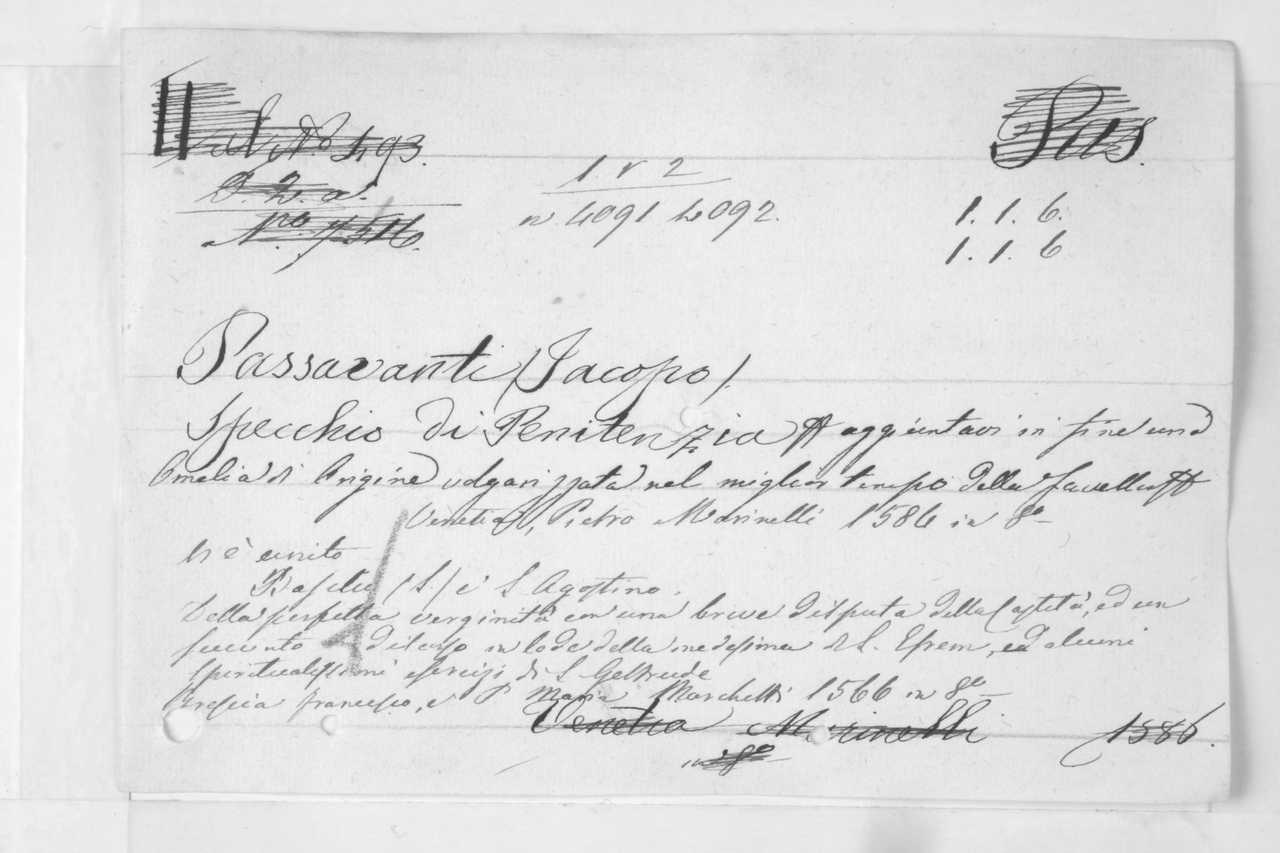 Pas.
N.o 493.
D. 2. a.
Nro 7516.
1 r 2
n. 4091 4092.
1. 1. 6.
1. 1. 6
Passavanti (Jacopo).
Specchio di Penitenzia aggiuntavi in fine una
Omelia di Origine volgarizzata nel miglior tempo della favella
Venetia, Pietro Marinelli 1586 in 8o
Vi è unito
Basilio (S.) e S. Agostino.
Della perfetta verginità con una breve disputa della Castità, ed un
discorso in lode della medesima di S. Efrem, ed alcuni
spiritualissimi esercizj di S. Geltrude
Brescia Francesco, e P Maria Marchetti 1566 in 8o
Venetia Marinelli 1586.
in 8o